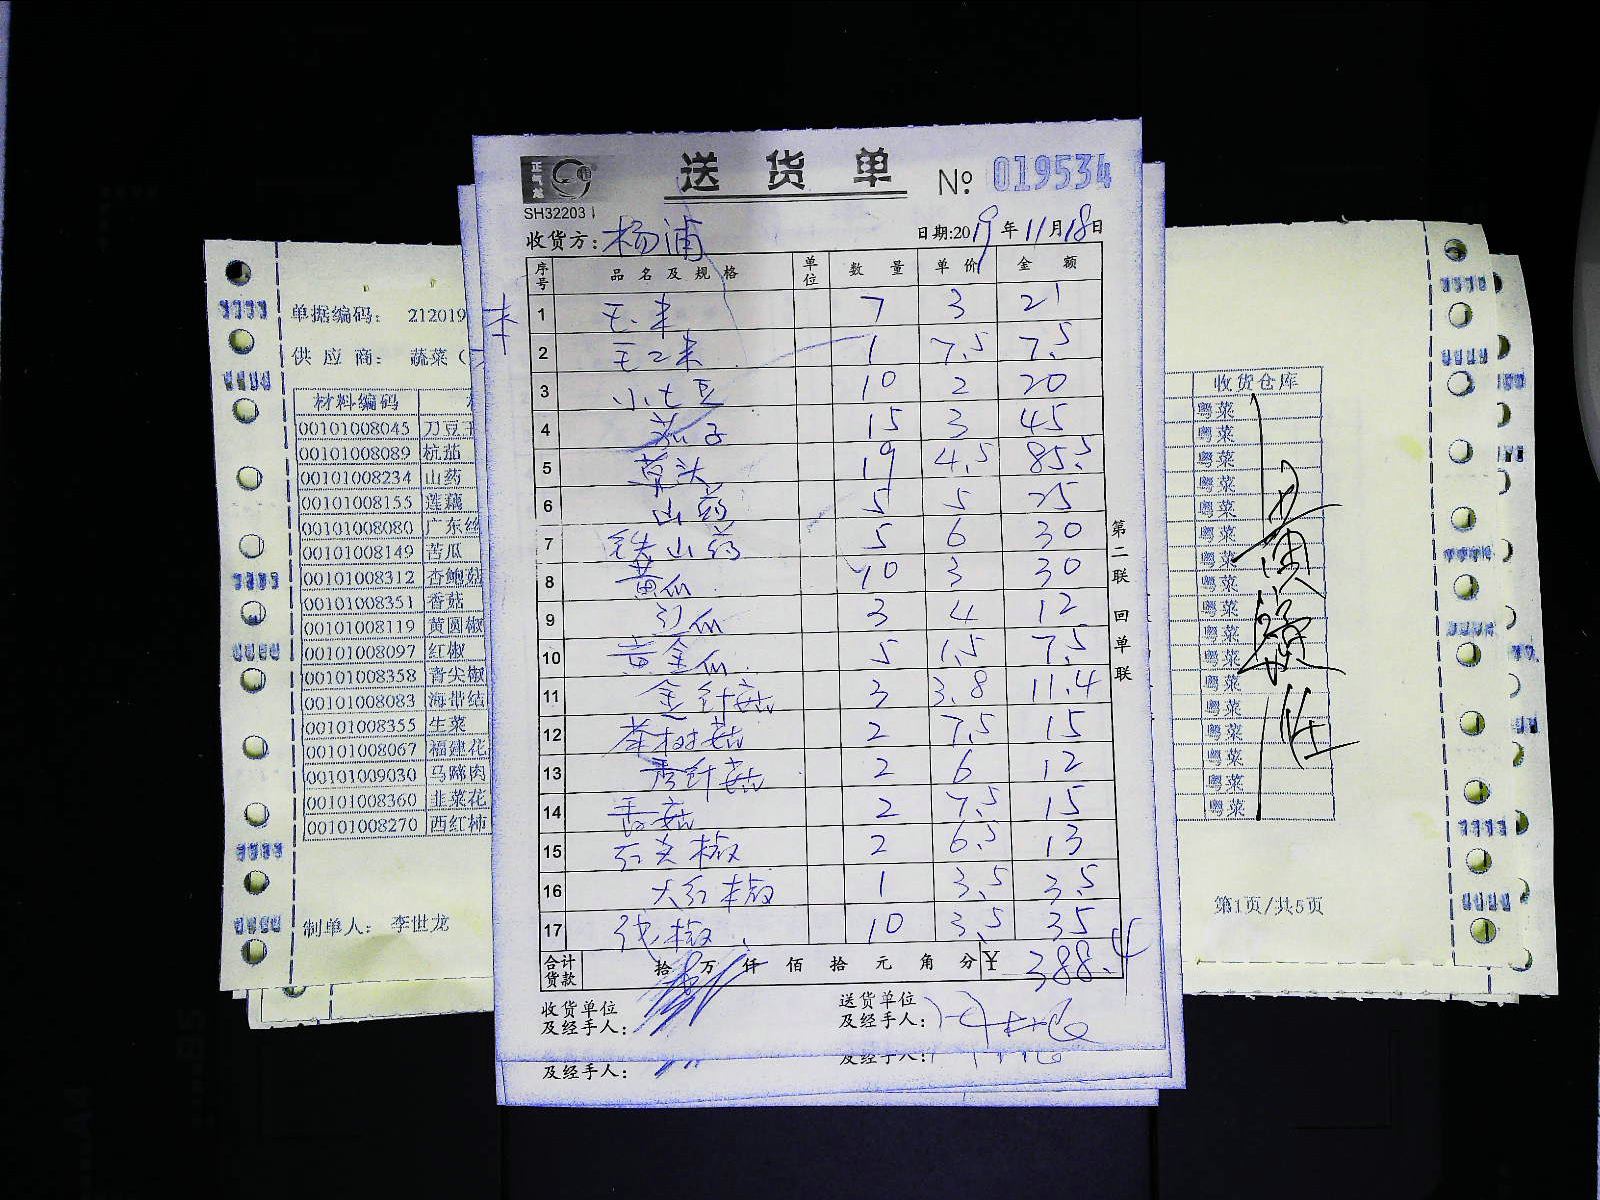 正气龙
送货单 № 019534
SH32203
收货方：杨浦 日期:2019年11月18日
序号 品名及规格 单位 数量 单价 金额
1 毛末 7 3 21
2 1 7.5 7.5
3 小土豆 10 2 20
4 茄子 15 3 45
5 草头 19 4.5 85.5
6 山药 5 5 25
7 铁山药 5 6 30
8 黄瓜 10 3 30
9 3 4 12
10 黄金瓜 5 1.5 7.5
11 金针菇 3 3.8 11.4
12 茶树菇 2 7.5 15
13 秀针菇 2 6 12
14 香菇 2 7.5 15
15 红尖椒 2 6.5 13
16 大红椒 1 3.5 3.5
17 椒 10 3.5 35
合计货款 拾 万 仟 佰 拾 元 角 分 ¥ 388.4
收货单位及经手人：
送货单位及经手人：
第二联 回单联
及经手人：
及经手人：
单据编码： 212019
供应商： 蔬菜（
材料编码
00101008045 刀豆
00101008089 杭茄
00101008234 山药
00101008155 莲藕
00101008080 广东丝
00101008149 苦瓜
00101008312 杏鲍菇
00101008351 香菇
00101008119 黄圆椒
00101008097 红椒
00101008358 青尖椒
00101008083 海带结
00101008355 生菜
00101008067 福建花
00101009030 马蹄肉
00101008360 韭菜花
00101008270 西红柿
制单人： 李世龙
收货仓库
粤菜
粤菜
粤菜
粤菜
粤菜
粤菜
粤菜
粤菜
粤菜
粤菜
粤菜
粤菜
粤菜
粤菜
粤菜
粤菜
粤菜
第1页/共5页